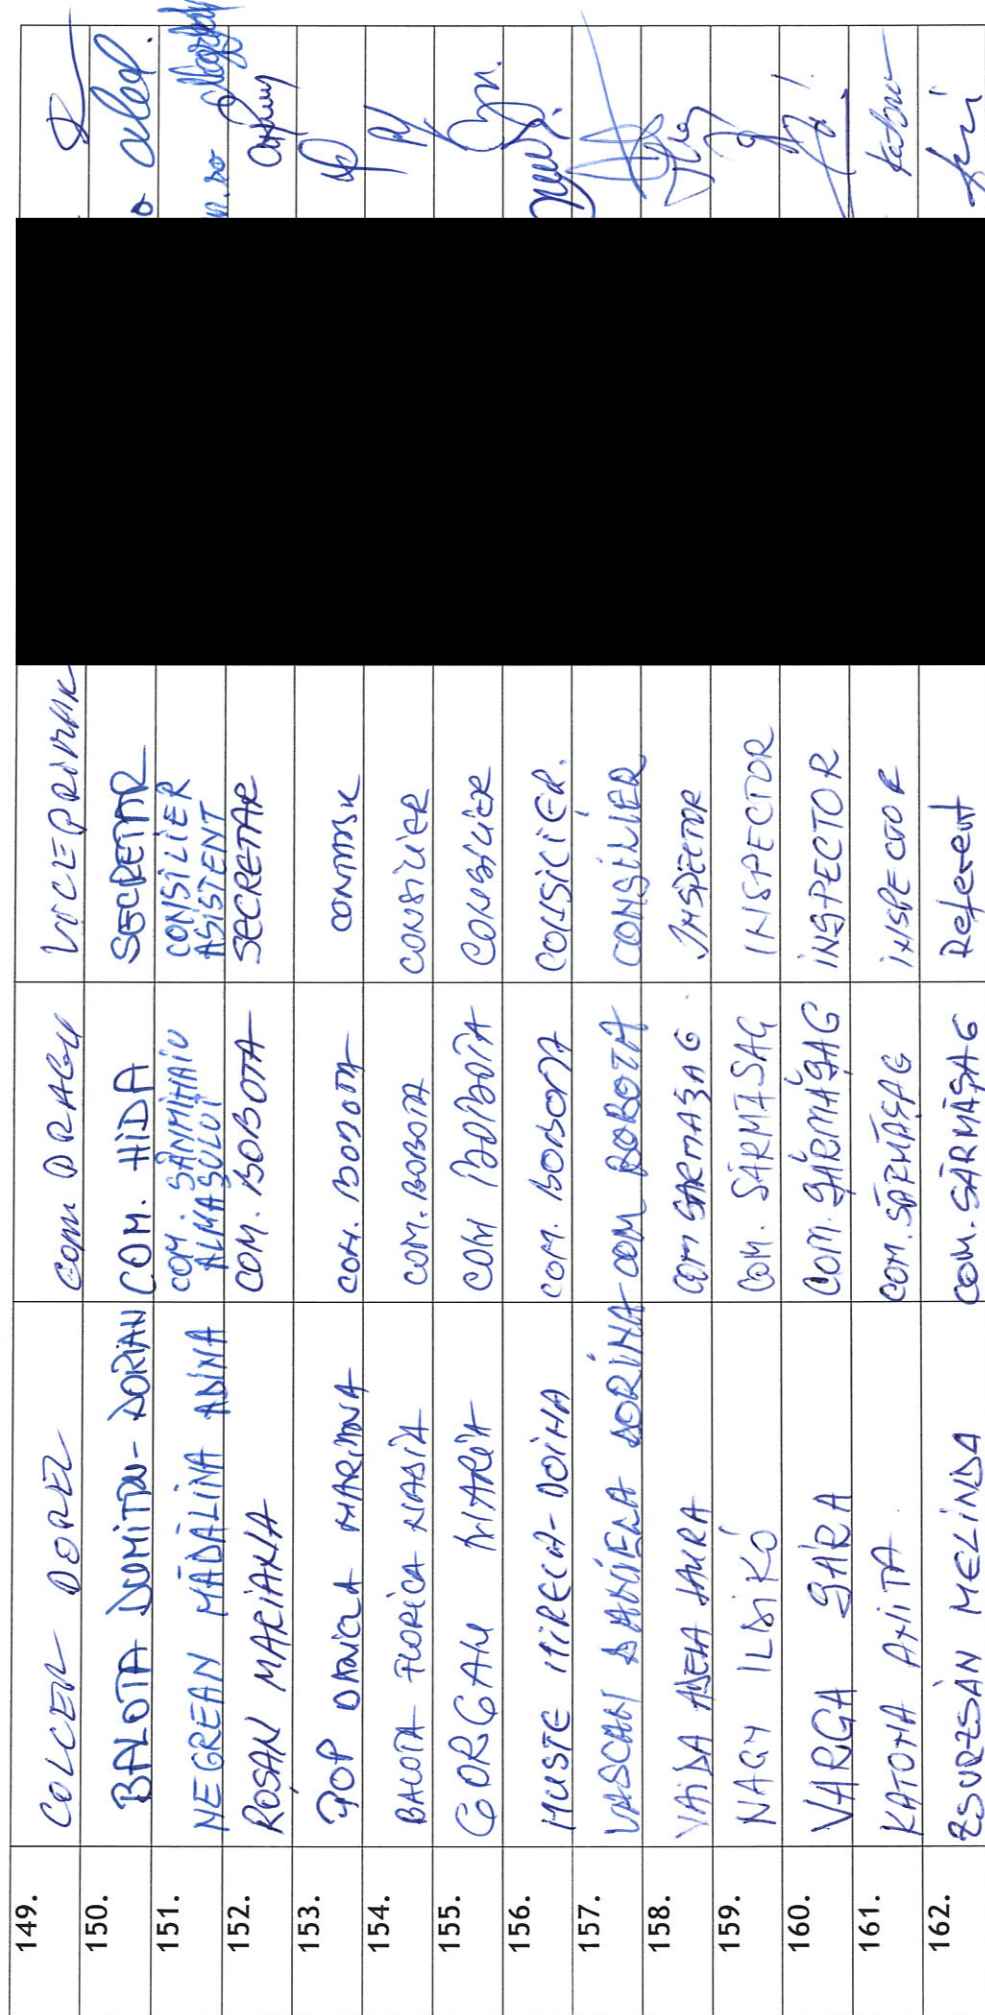 149. COLCER DOREL COM DRAGU VICEPRIMAR
150. BALOTA DUMITRU-DORIAN COM. HIDA SECRETAR
151. NEGREAN MĂDĂLINA ADINA COM. SÂNMIHAIU CONSILIER
ALMAȘULUI ASISTENT
152. ROȘAN MARIANA COM. BOBOTA SECRETAR
153. POP MARINA COM. BOBOTA
154. BALOTA FLORICA COM. BOBOTA CONSILIER
155. MARIA COM BOBOTA CONSILIER
156. MUSTE MIRELA-DOINA COM. BOBOTA CONSILIER.
157. VASCAN DANIELA DORINA COM BOBOTA CONSILIER
158. VAIDA ADELA LAURA COM SARMASAG INSPECTOR
159. NAGY ILDIKÓ COM. SĂRMĂSAG INSPECTOR
160. VARGA SÁRA COM. SĂRMĂȘAG INSPECTOR
161. KATONA ANITA COM. SĂRMĂȘAG INSPECTOR
162. ZSURZSÁN MELINDA COM. SĂRMĂȘAG Referent